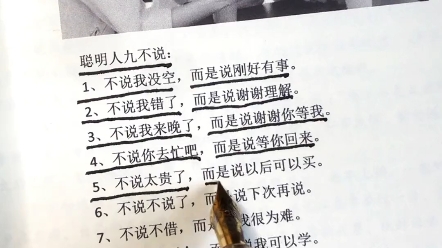 聪明人九不说：
1、不说我没空，而是说刚好有事。
2、不说我错了，而是说谢谢理解。
3、不说我来晚了，而是说谢谢你等我。
4、不说你去忙吧，而是说等你回来。
5、不说太贵了，而是说以后可以买。
6、不说不说了，而 说下次再说。
7、不说不借，而 我很为难。
说我可以学。